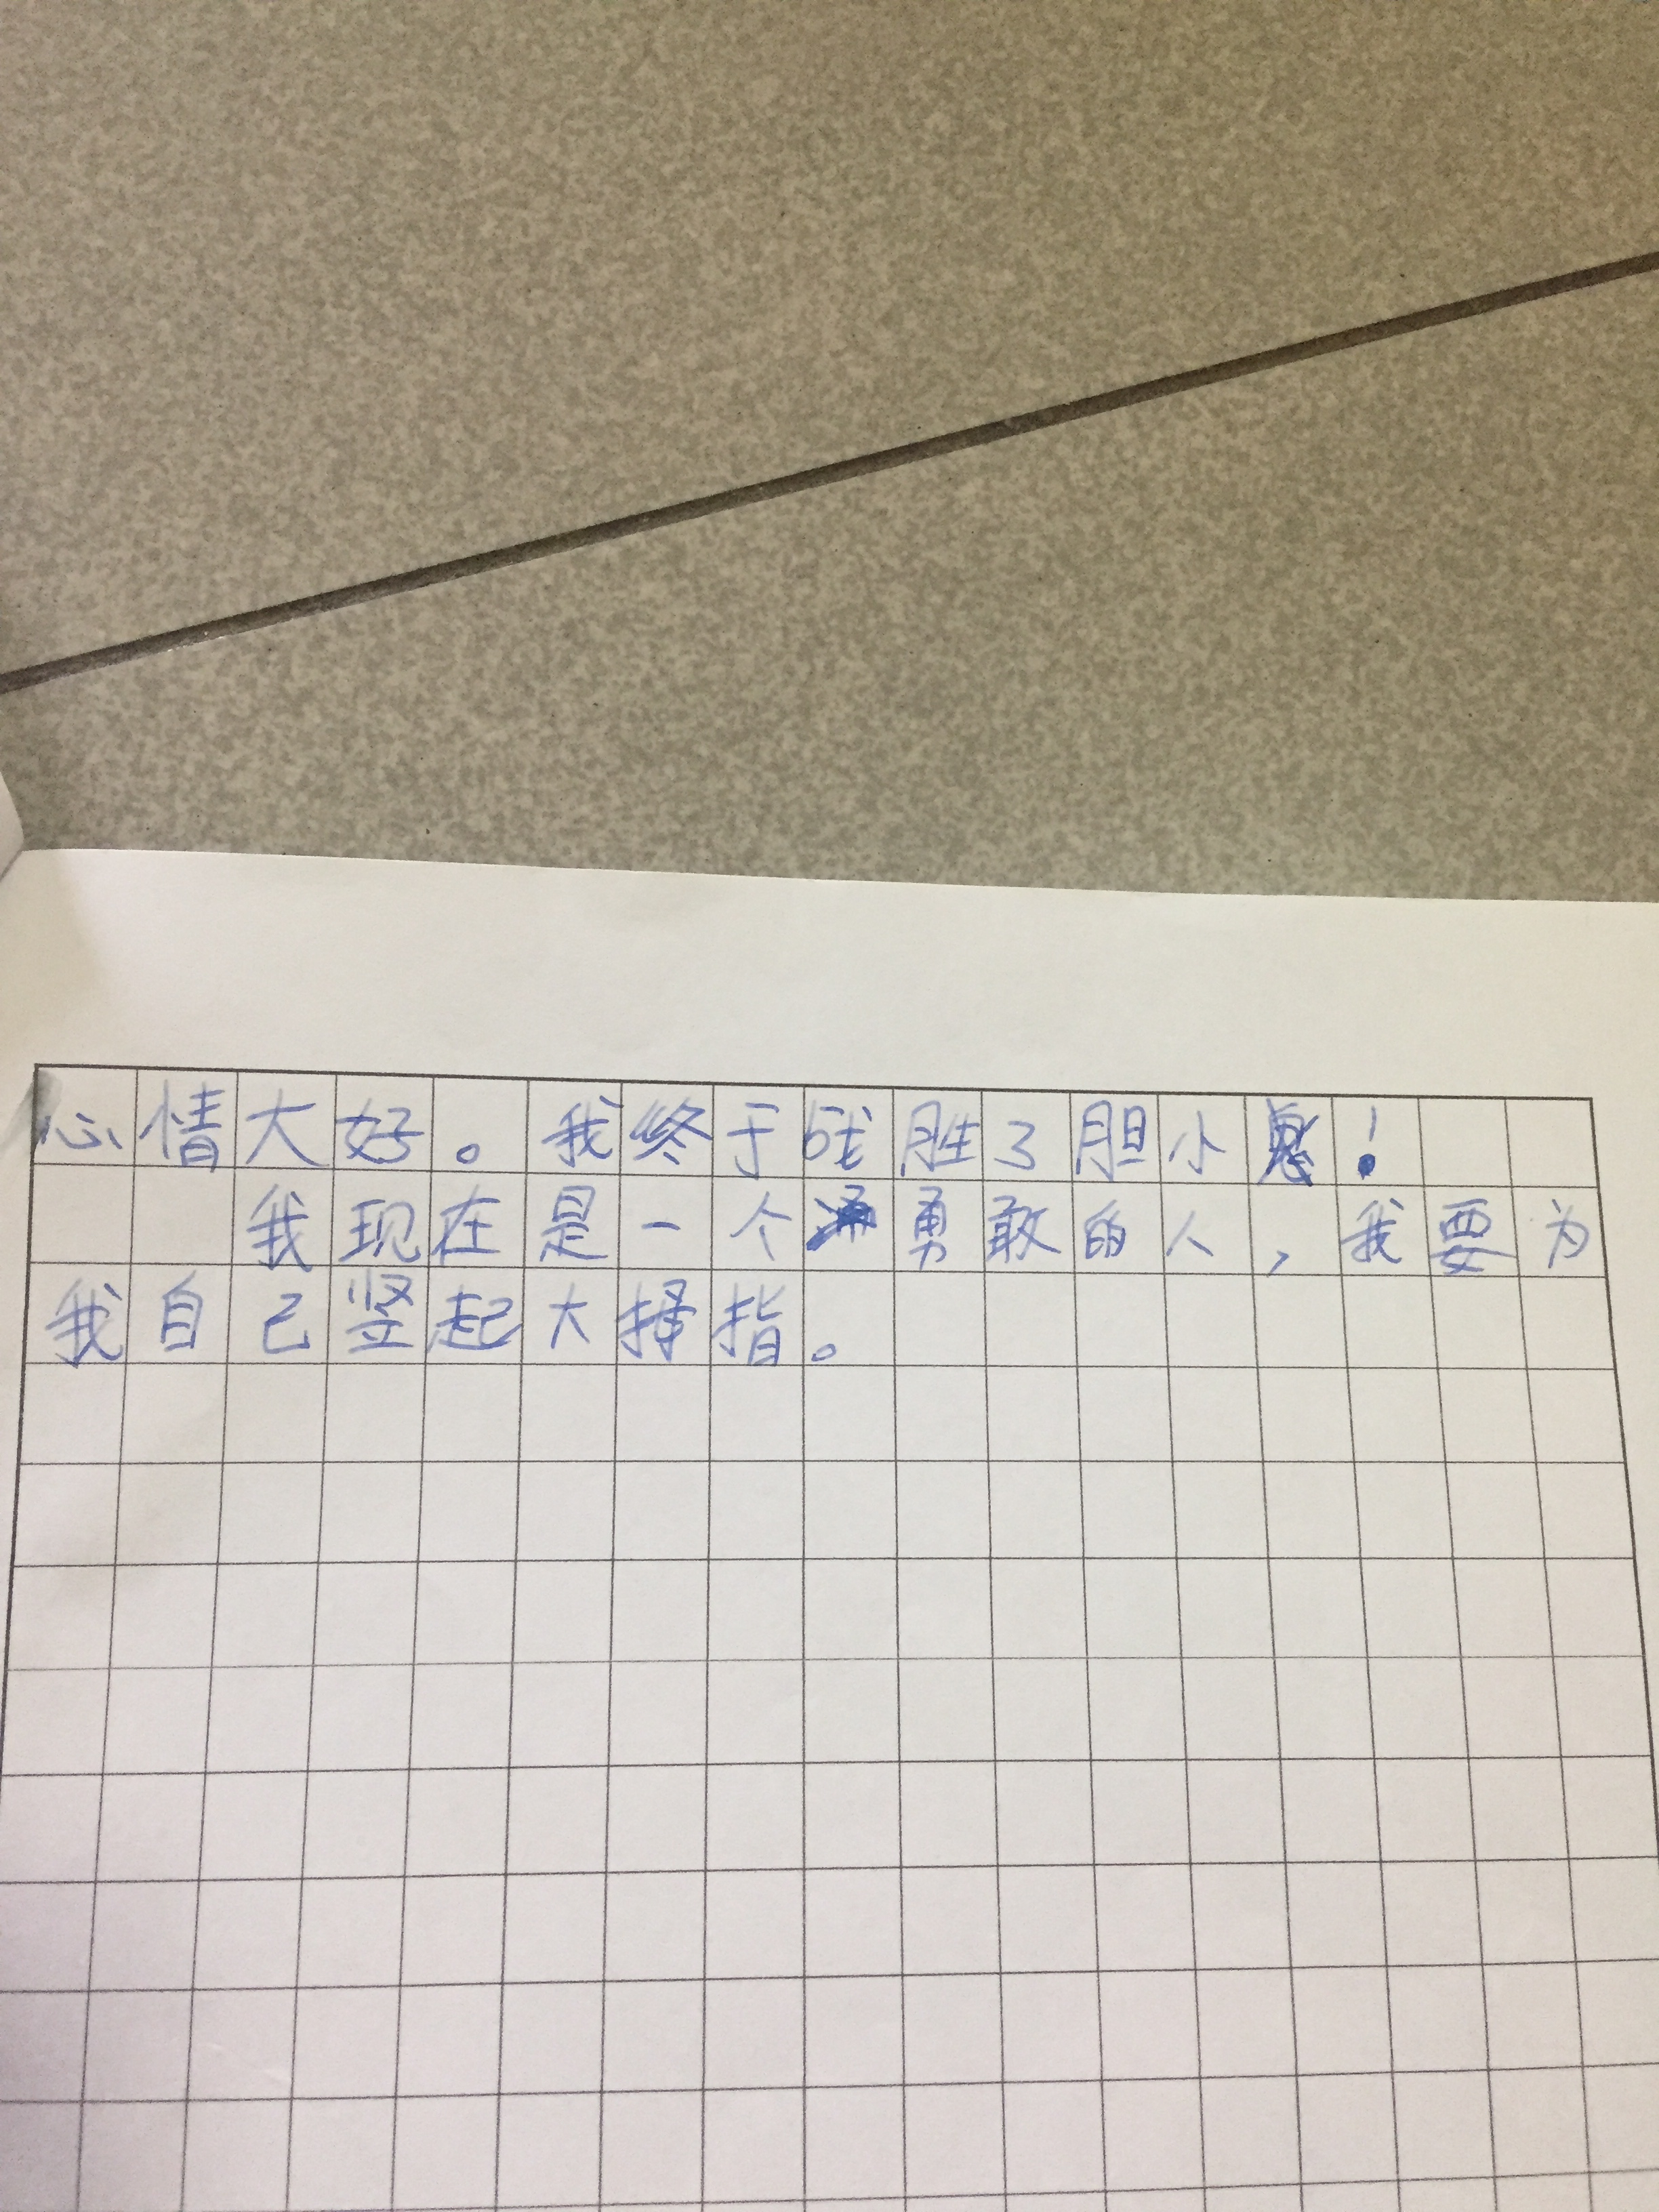 心情大好。我终于战胜了胆小鬼！
我现在是一个勇敢的人，我要为
我自己竖起大指。